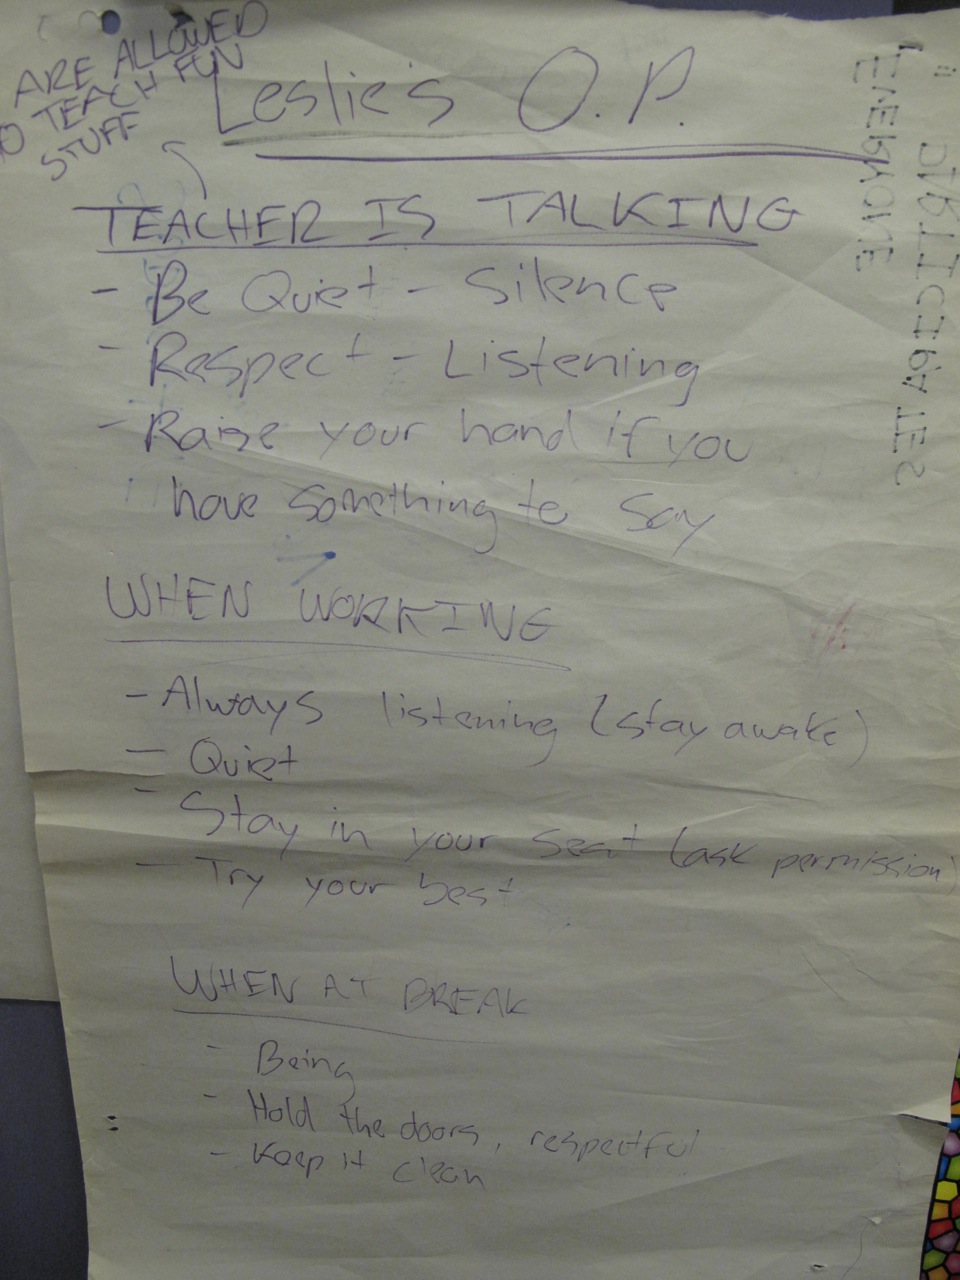 ARE ALLOWED
TO TEACH FUN
STUFF
Leslie's O.P.
EVERYONE
PARTICIPATES
TEACHER IS TALKING
- Be Quiet - Silence
- Respect - Listening
- Raise your hand if you
have something to say
WHEN WORKING
- Always listening (stay awake)
- Quiet
- Stay in your seat (ask permission)
- Try your best
WHEN AT BREAK
- Being
- Hold the doors, respectful
- Keep it clean